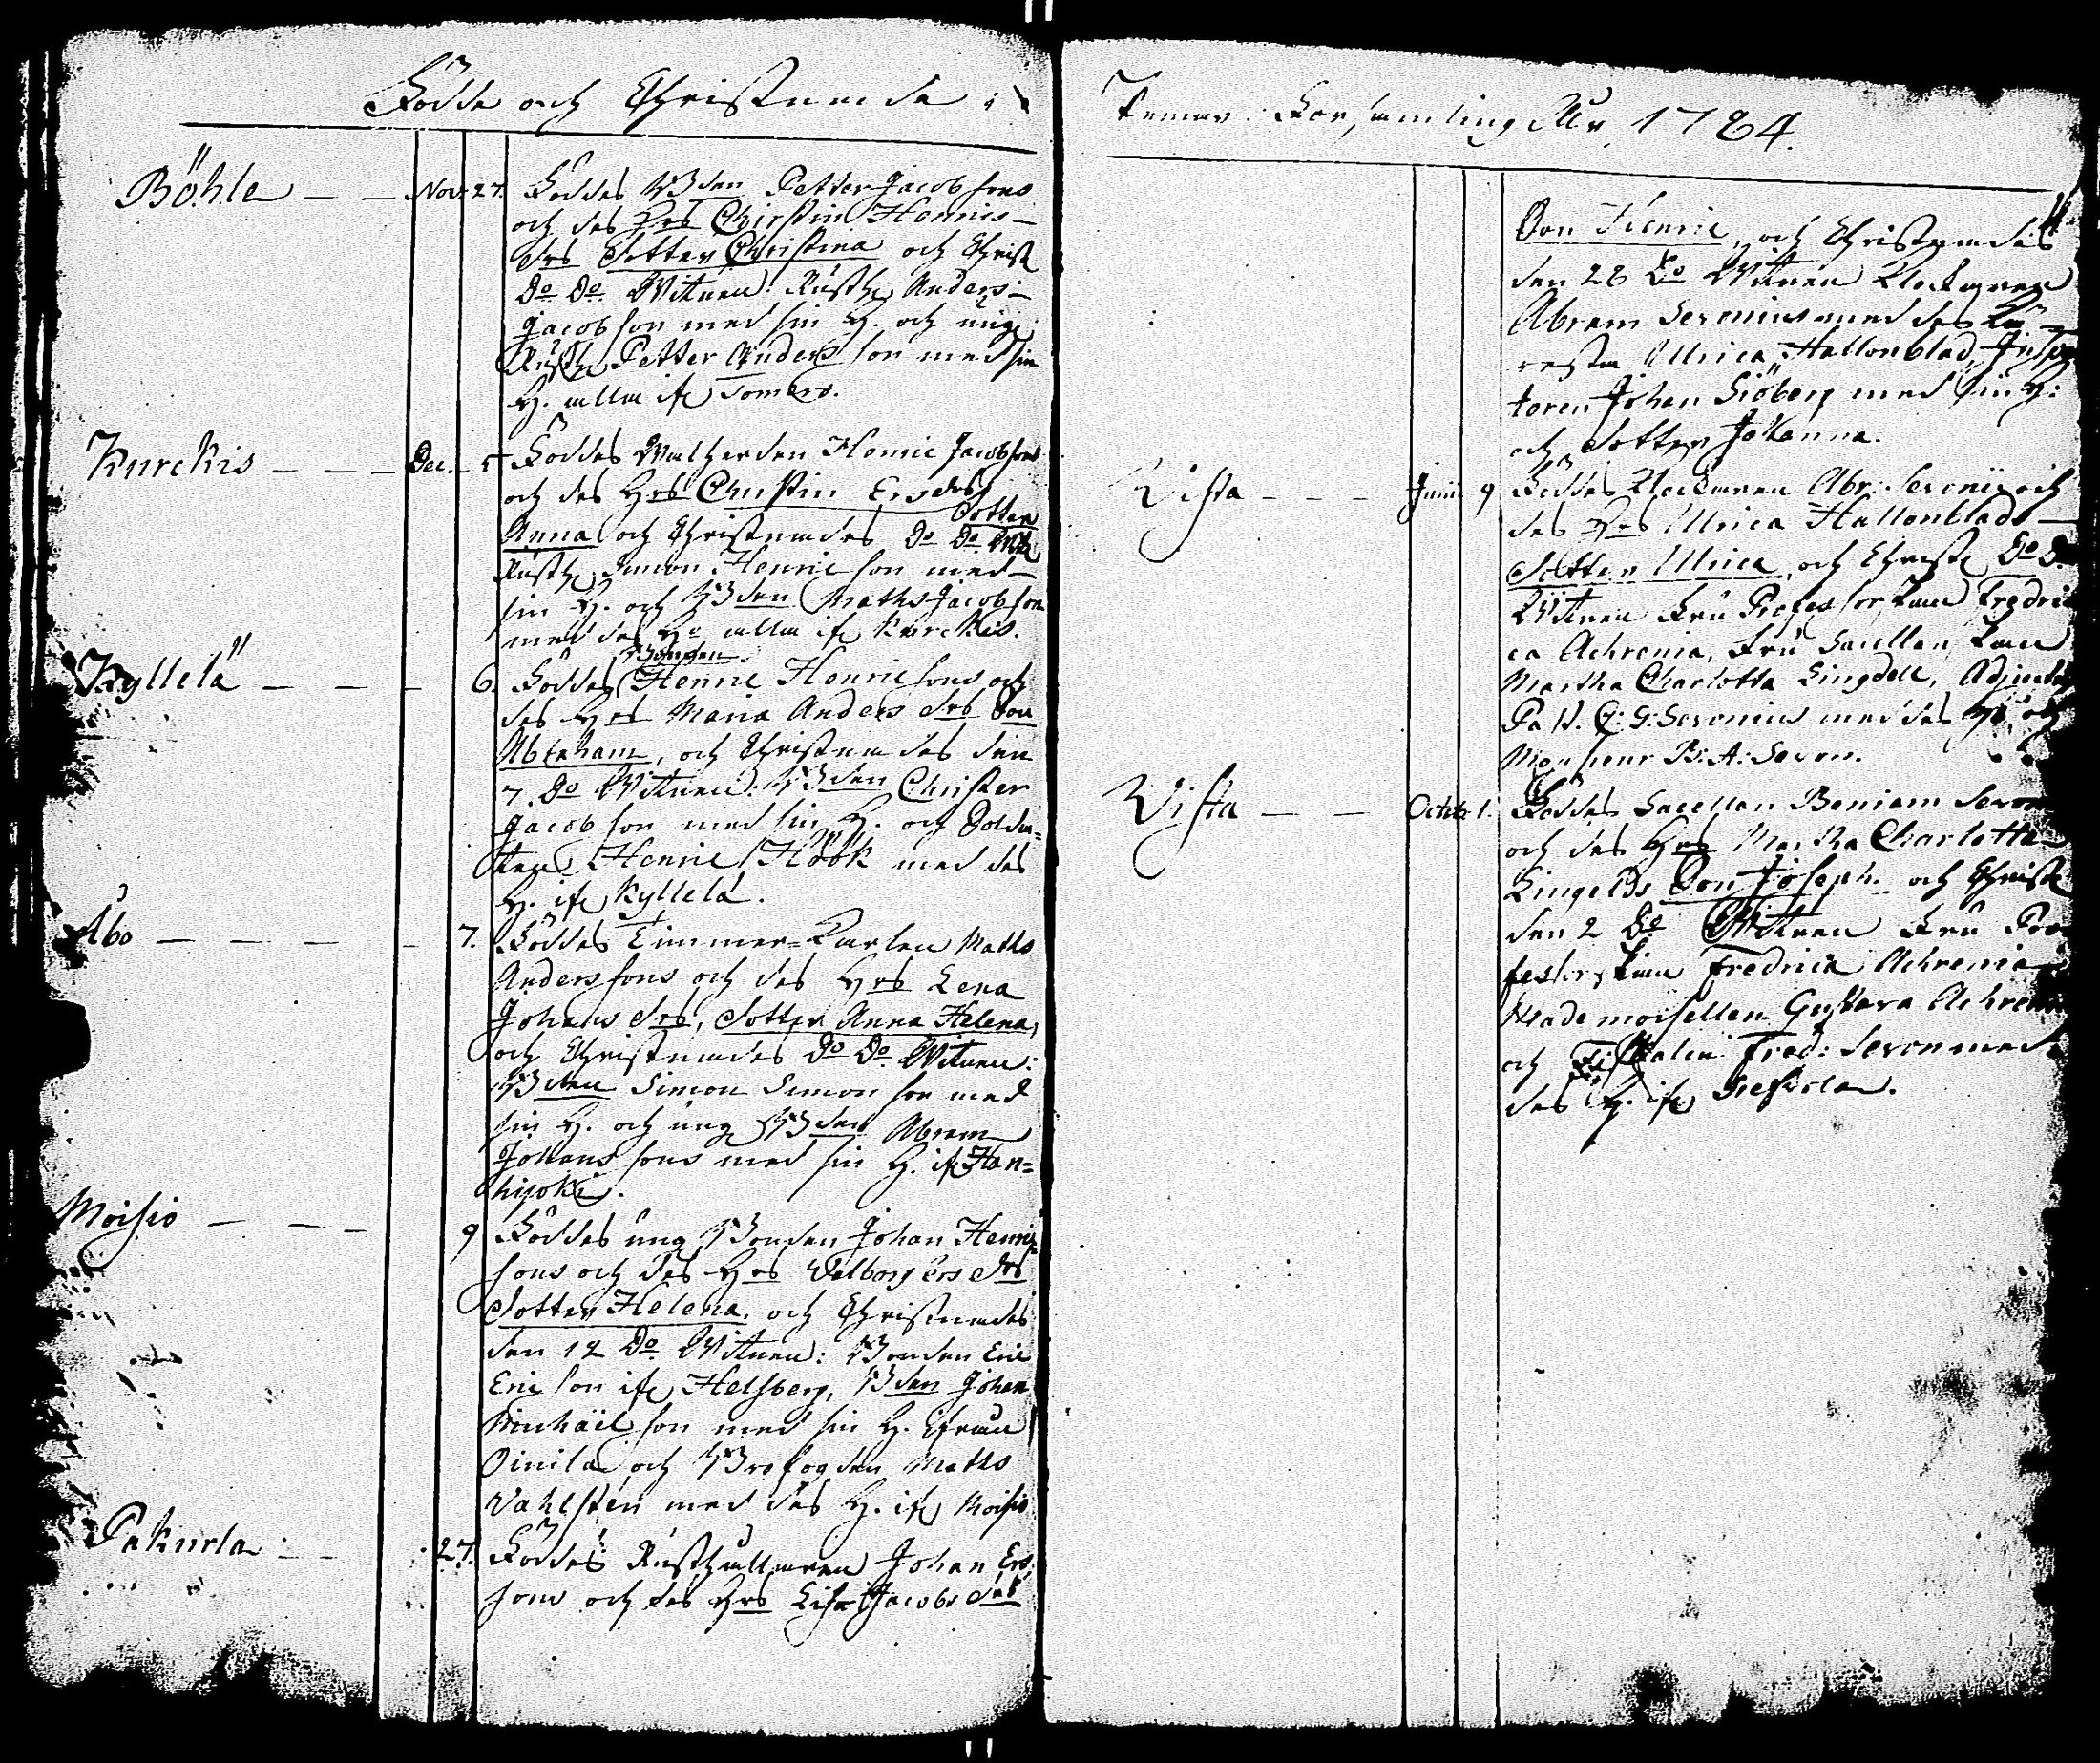 Födde och Christnade i
Böhle — — Nov. 27. Föddes Bden Petter Jacobsons
och des Hrs Chirstin Henrics-
drs dotter Christina och Christ
Do Do. Witnen: Rusth. Anders
Jacobson med sin H. och ung
Rusth. Petter Andersson med sin
H. alla if. Somero.
Kurckis — — — Dec. — 5 Föddes Henric Jacobsons
och des Hrs Christin Ersdrs
dotter
Anna och Christnades Do Do Witn
Rusth. Simon Henricson med
sin H. och Bden Maths Jacobson
med des H. alla if. Kurckis.
Bonden
Kyllelä — — — 6. Föddes Henric Henricsons och
des Hrs Maria Anders drs Son
Abraham, och Christnades den
7. Do Witnen: Bden Christer
Jacobson med sin H. och Solda=
ten Henric Höök med des
H. if. Kyllelä.
Åbo — — — — — 7. Föddes Timmer=Karlen Maths
Anderssons och des Hrs Lena
Johans drs, dotter Anna Helena,
och Christnades Do Do. Witnen:
Bden Simon Simonson med
sin H. och ung Bden Abram
Johans sons med sin H. if. Han=
hijoki.
Moisio — — — 9 Föddes ung Bonden Johan Henric
sons och des Hrs Valborg Ers drs
dotter Helena. och Christnades
den 12 Do. Witnen: Bonden Eric
Ericson if. Helsberg, Bden Johan
Michäelson med sin H. ifrån
Oinila och Brofogden Maths
Vahlsten med des H. if. Moisio
Pakurla — — 27. Föddes Rusthållaren Johan Ers
sons och des Hrs Lisa Jacobs drs
Församling År 1784.
Son Henric, och Christnades
den 28 Do Witnen Klockaren
Abram Seronius med des Kä-
resta Ulrica Hallonblad, Inspec
toren Johan Siöberg med sin H:
och dotter Johanna.
Vista — — — Junii 9 Föddes Klockaren Abr: Seronii och
des Hrs Ulrica Hallonblads
dotter Ulrica, och Christ Do Do
Witnen Fru Professorskan Fredri
ca Achrenia, Fru Sacellan skan
Martha Charlotta Lingdell, Adjunct
Past. C: G: Seronius med des H. och
Monsieur B: A: Seron.
Vista — — Octobr 1. Föddes Sacellan Beniam Seron
och des Hrs Martha Charlotta
Son Joseph. och Christ
den 2 Do Witnen Fru Pro
fessorskan Fredrica Achrenia
Mademoisellen Gustava Achrenia
och Fred: Seron med
des H. if.